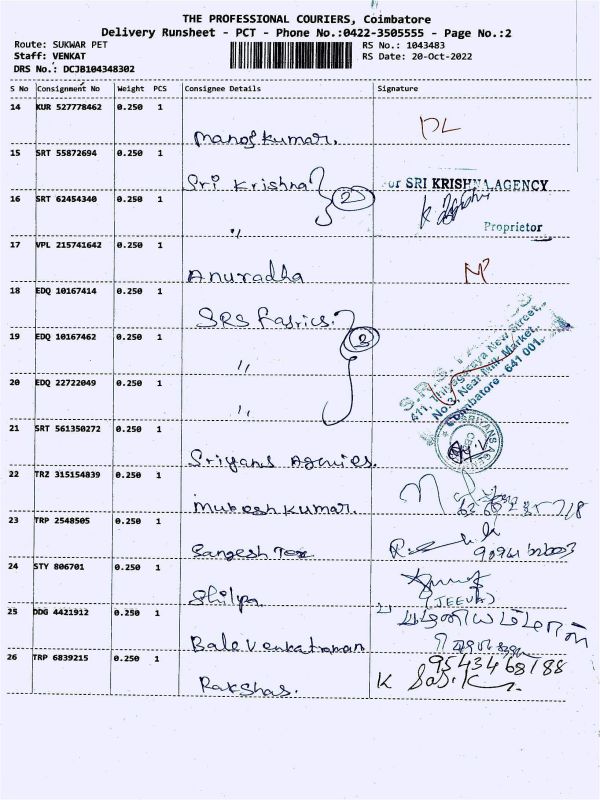 THE PROFESSIONAL COURIERS, Coimbatore
Delivery Runsheet - PCT - Phone No.:0422-3505555 - Page No.:2
Route: SUKWAR PET RS No.: 1043483
Staff: VENKAT RS Date: 20-Oct-2022
DRS No.: DCJB104348302
S No Consignment No Weight PCS Consignee Details Signature
14 KUR 527778462 0.250 1
Manoj kumar. DL
15 SRT 55872694 0.250 1
Sri Krishna or SRI KRISHNA AGENCY
16 SRT 62454340 0.250 1 2
" Proprietor
17 VPL 215741642 0.250 1
Anuradha
18 EDQ 10167414 0.250 1
SRS Fabrics.
19 EDQ 10167462 0.250 1 3
"
20 EDQ 22722049 0.250 1
"
411, Thiyagaraya New Street,
No.3, Near Milk Market,
Coimbatore - 641 001.
21 SRT 561350272 0.250 1
Sriyans Agencies.
22 TRZ 315154839 0.250 1
Mukesh kumar.
23 TRP 2548505 0.250 1
Sangesh Tex
24 STY 806701 0.250 1
Shilpa (JEEVA)
25 DDG 4421912 0.250 1
Bale Venkatraman
9543468788
26 TRP 6839215 0.250 1
Rakshas. K Sasi.K